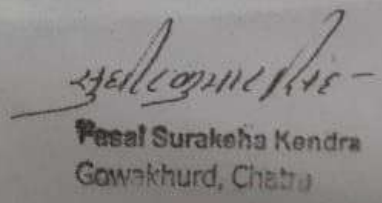 कुमार सिंह
Fasal Suraksha Kendra
Gowakhurd, Chatra